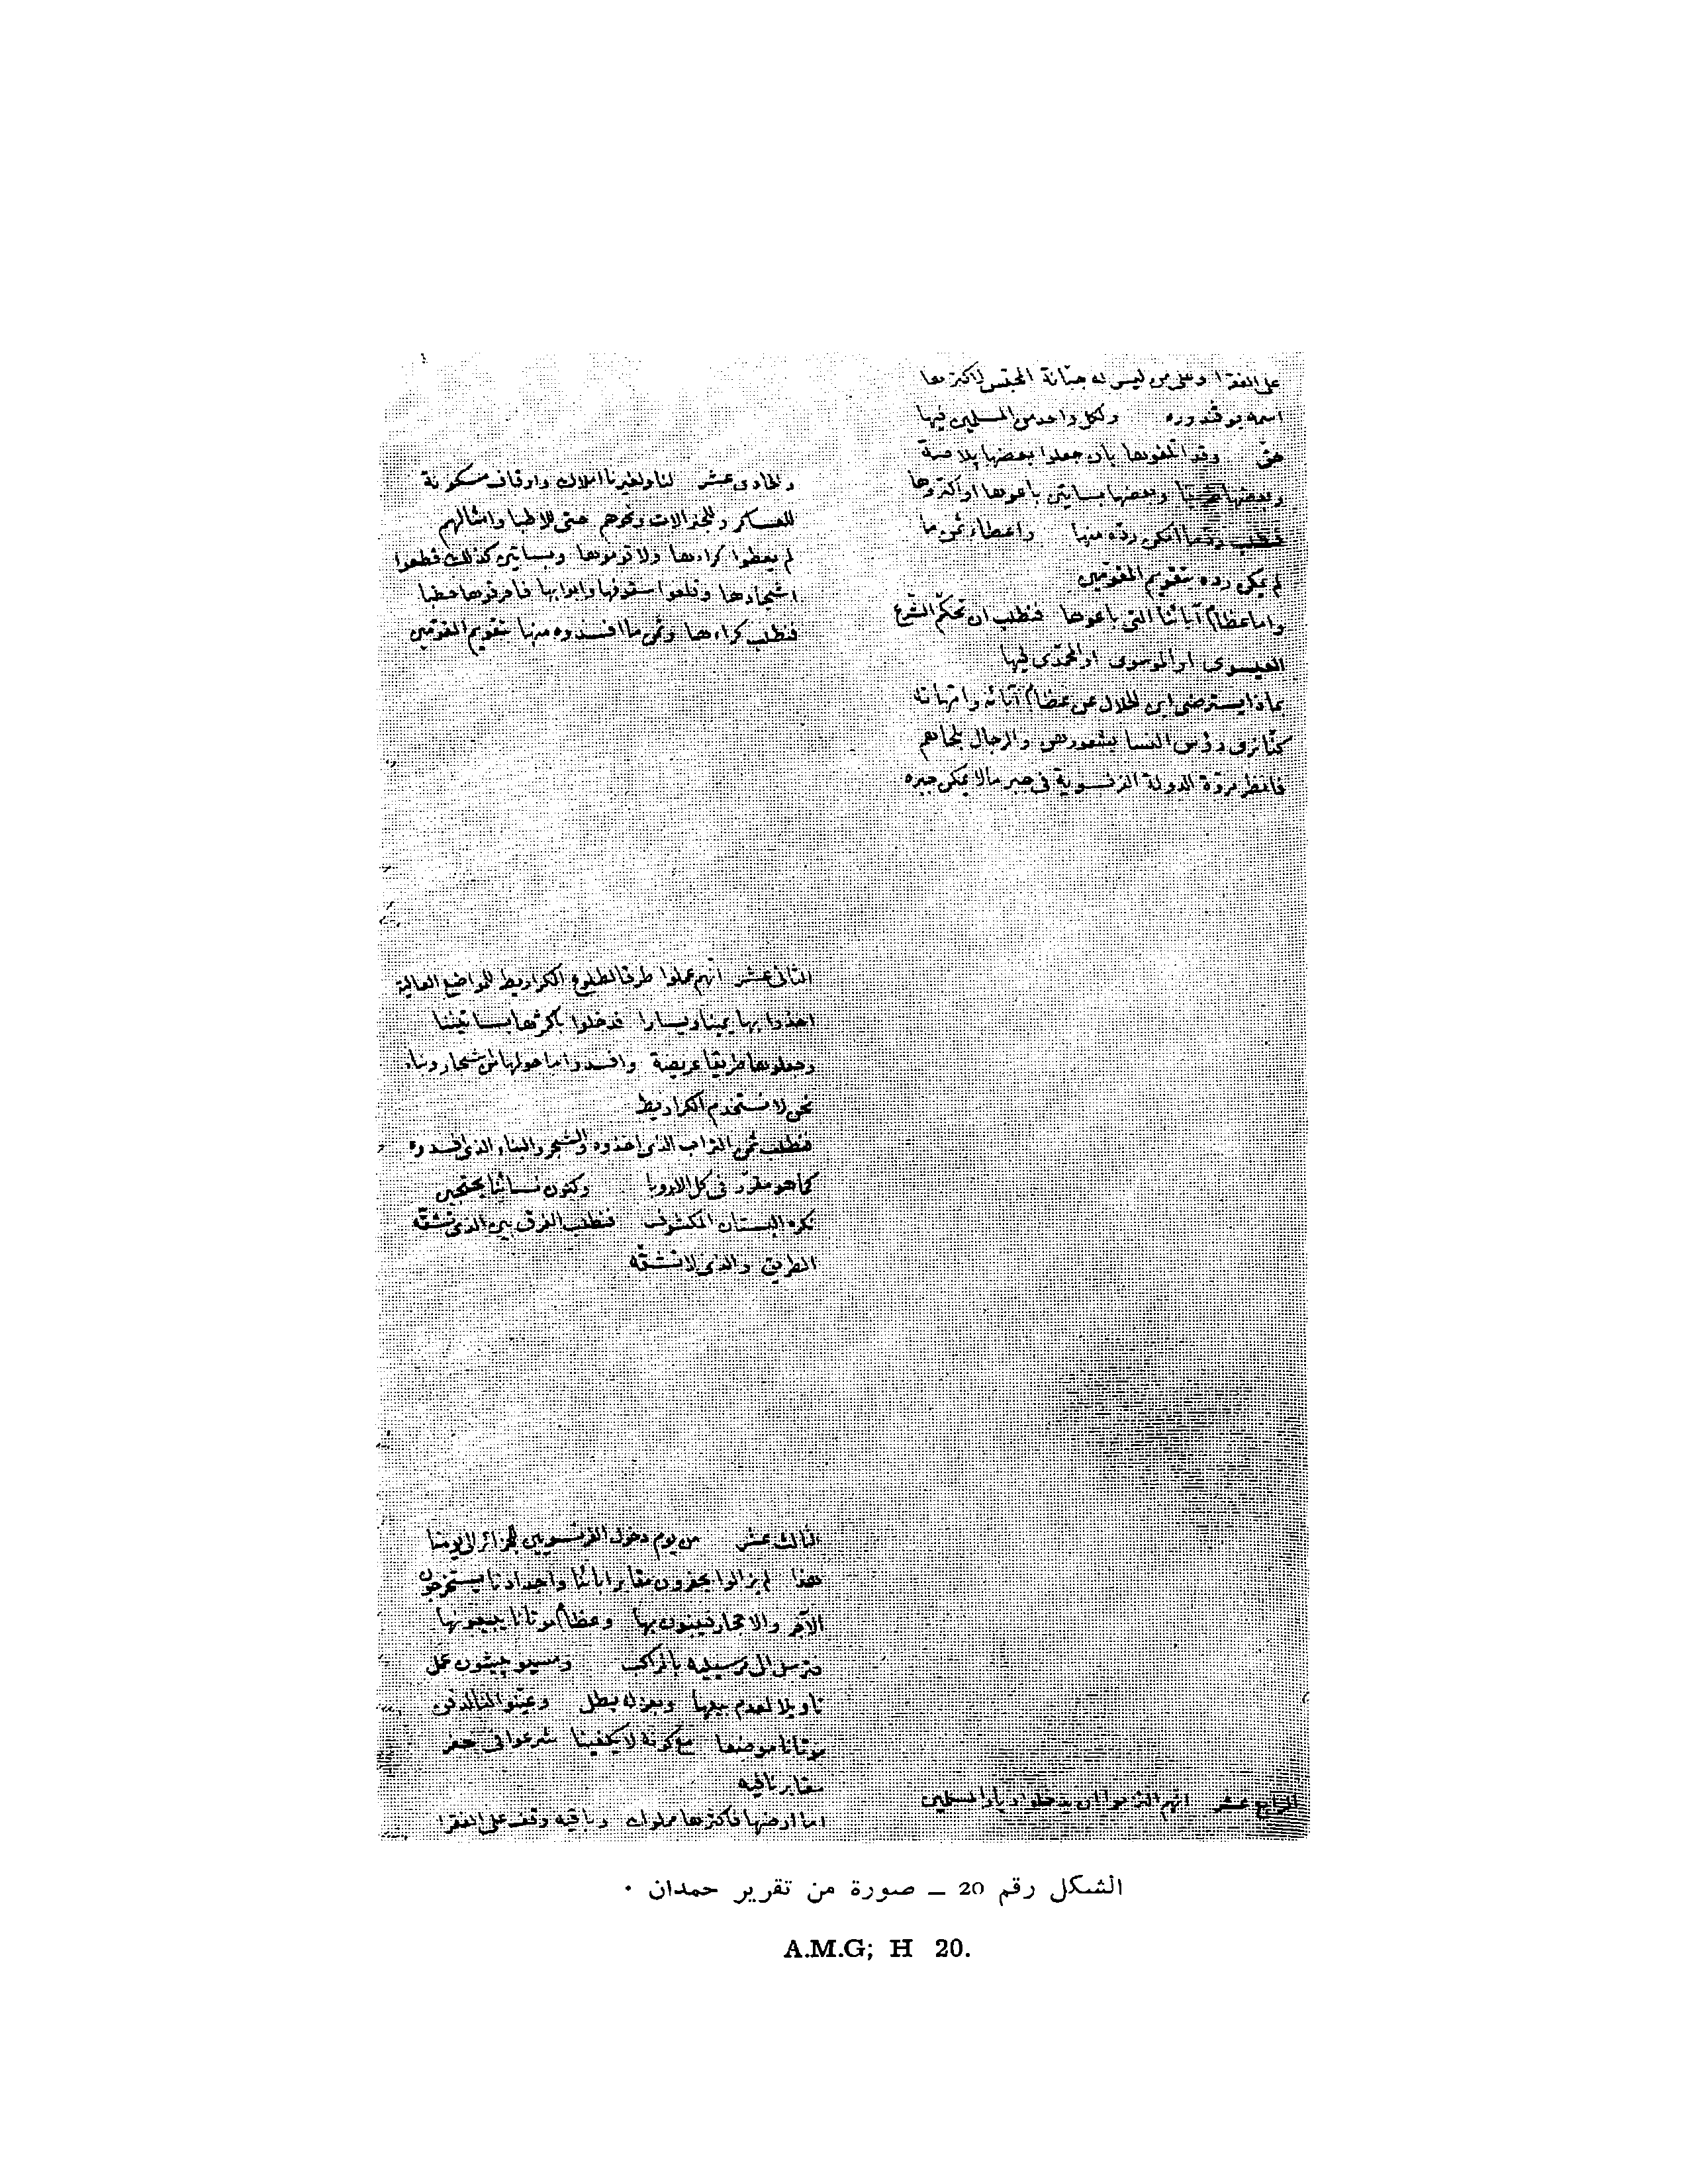 على الفقرا وعلى من ليس له جبّانة المحتبس لاكثرها
اسمه بو قندوره ولكل واحد من المسلمين فيها
حق وقد اتلفوها بان جعلوا بعضها بلاصة
وبعضها وبعضها بساتين باعوها او اكتروها
فنطلب ما امكن ردّه منها واعطاء ثمن ما
لم يمكن رده بتقويم المقوّمين
واما عظام آبائنا التي باعوها فنطلب ان تحكّم الشرع
العيسوى او الموسوى او المحمّدى فيها
بماذا يسترضى ابن الحلال عن عظام آبائه وامّهاته
كنّا نرى رؤس النسا بشعورهن والرجال بلحاهم
فانظر مروّة الدولة الفرنسوية فى جبر ما لا يمكن جبره
الرابع عشر انهم التزموا ان يدخلوا ديار المسلمين
والحادى عشر لنا ولغيرنا املاك واوقاف مسكونة
للعساكر وللجنرالات ونحوهم حتى للاطبا وامثالهم
لم يعطوا كراءها ولا قوموها وبساتين كذلك قطعوا
اشجارها وقلعوا سقوفها وابوابها فاحرقوها حطبا
فنطلب كراءها وثمن ما افسدوه منها بتقويم المقوّمين
الثانى عشر انّهم عملوا طرقا لطلوع الكراريط للمواضع العالية
اخذوا بها يمينا ويسارا فدخلوا باكثرها بساتيننا
وجعلوها طريقا عريضة وافسدوا ما حولها من اشجار وبناء
نحن لا نستخدم الكراريط
فنطلب ثمن التراب الذى اخذوه والشجر والبناء الذى افسدوه
كما هو مقرّر فى كل الاوروبا ولكون نسائنا يحتجبن
نكره البستان المكشوف فنطلب الفرق بين الذى تشقّه
الطريق والذى لا تشقّه
الثالث عشر من يوم دخول الفرنسويين للجزائر الى يومنا
هذا لم يزالوا يحفرون مقابر ابائنا واجدادنا يستخرجون
الآجر والاحجار فيبنون بها وعظام موتانا يبيعونها
فترسل الى مرسيليه بالمراكب ومسيو جنتون عمل
تاويلا لعدم بيعها وبعزله بطل وعيّنوا لنا لدفن
موتانا موضعا مع كونه لا يكفينا شرعوا فى حفر
مقابرنا فيه
اما ارضها فاكثرها مملوك وباقيه وقف على الفقرا
الشكل رقم 20 ــ صورة من تقرير حمدان .
A.M.G; H 20.